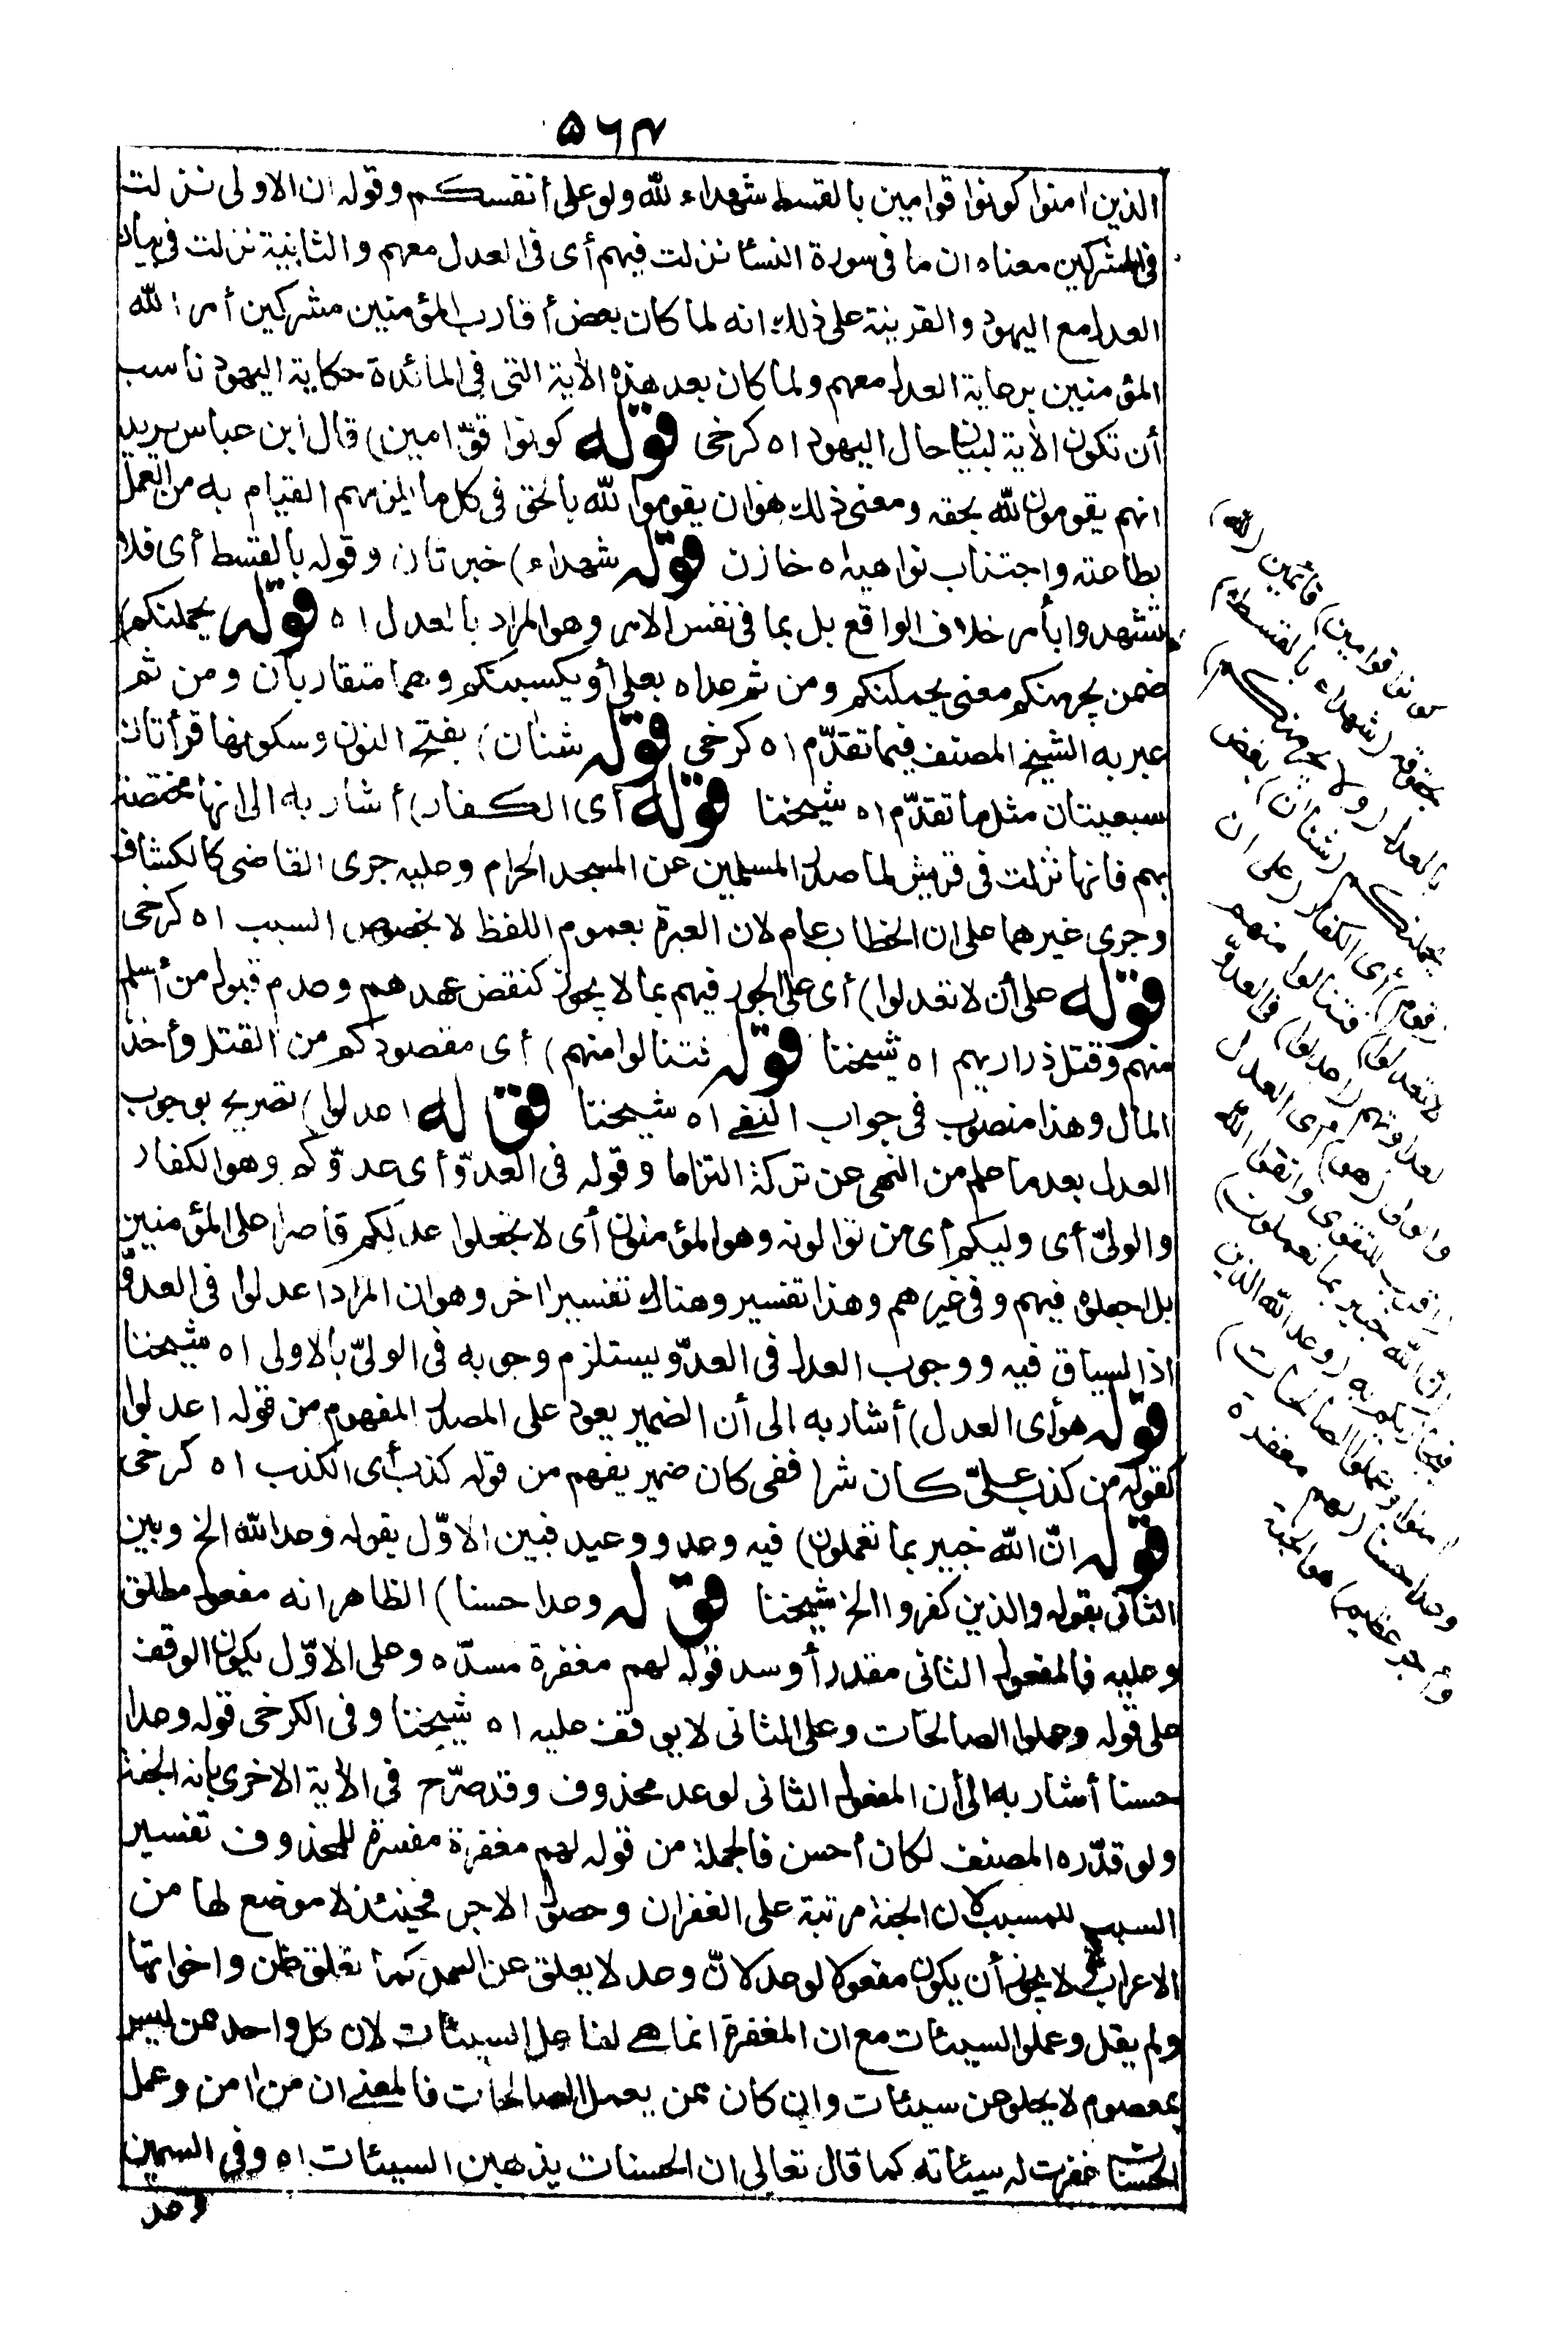 ۵۶۴
الذين امنوا كونوا قوامين بالقسط شهداء لله ولو على أنفسكم وقوله ان الاولى نزلت
فى المشركين معناه ان ما فى سورة النسا نزلت فيهم أى فى العدل معهم والثانية نزلت فى بيان
العدل مع اليهود والقرينة على ذلك انه لما كان بعض أقارب المؤمنين مشركين أمر الله
المؤمنين برعاية العدل معهم ولما كان بعد هذه الأية التى فى المائدة حكاية اليهود ناسب
أن تكون الأية لبيان حال اليهود اه كرخى قوله كونوا قوّامين) قال ابن عباس يريد
انهم يقومون لله بحقه ومعنى ذلك هو ان يقوموا لله بالحق فى كل ما يلزمهم القيام به من العمل
بطاعته واجتناب نواهيه اه خازن قوله شهداء) خبر ثان وقوله بالقسط أى فلا
تشهدوا بأمر خلاف الواقع بل بما فى نفس الامر وهو المراد بالعدل اه قوله يحملنكم)
ضمن يجرمنكم معنى يحملنكم ومن ثم عداه بعلى أو يكسبنكم وهما متقاربان ومن ثم
عبر به الشيخ المصنف فيما تقدّم اه كرخى قوله شنأن) بفتح النون وسكونها قرأتان
سبعيتان مثل ما تقدّم اه شيخنا قوله أى الكفار) أشار به الى انها مختصة
بهم فانها نزلت فى قريش لما صدّوا المسلمين عن المسجد الحرام وعليه جرى القاضى كالكشاف
وجرى غيرهما على ان الخطاب عام لان العبرة بعموم اللفظ لا بخصوص السبب اه كرخى
قوله على أن لا تعدلوا) أى على الجور فيهم بما لا يجوز كنقض عهدهم وعدم قبول من أسلم
منهم وقتل ذراريهم اه شيخنا قوله فتنالوا منهم) أى مقصودكم من القتل وأخذ
المال وهذا منصوب فى جواب النفى اه شيخنا قوله اعدلوا) تصريح بوجوب
العدل بعد ما علم من النهى عن تركه التزاما وقوله فى العدوّ أى عدوّكم وهو الكفار
والولىّ أى وليكم أى من توالونه وهو المؤمنون أى لا تجعلوا عدلكم قاصرا على المؤمنين
بل اجعلوه فيهم وفى غيرهم وهذا تفسير وهناك تفسير اخر وهو ان المراد اعدلوا فى العدوّ
اذ السياق فيه ووجوب العدل فى العدوّ يستلزم وجوبه فى الولىّ بالاولى اه شيخنا
قوله هو أى العدل) أشار به الى أن الضمير يعود على المصدر المفهوم من قوله اعدلوا
كقوله من كذب علىّ كان شرا ففى كان ضمير يفهم من قوله كذب أى الكذب اه كرخى
قوله انّ الله خبير بما تعملون) فيه وعد ووعيد فبين الاوّل بقوله وعد الله الخ وبين
الثانى بقوله والذين كفروا الخ شيخنا قوله وعدا حسنا) الظاهر انه مفعول مطلق
وعليه فالمفعول الثانى مقدر أو سد قوله لهم مغفرة مسدّه وعلى الاوّل يكون الوقف
على قوله وعملوا الصالحات وعلى الثانى لا يوقف عليه اه شيخنا وفى الكرخى قوله وعدا
حسنا أشار به الى أن المفعول الثانى لوعد محذوف وقد صرّح فى الأية الاخرى بانه الجنة
ولو قدّره المصنف لكان أحسن فالجملة من قوله لهم مغفرة مفسرة للمحذوف تفسير
السبب للمسبب لان الجنة مرتبة على الغفران وحصول الاجر فحينئذ لا موضع لها من
الاعراب لا يجوز أن يكون مفعولا لوعد لانّ وعد لا يعلق عن العمل كما تعلق ظن واخواتها
ولم يقل وعملوا السيئات مع ان المغفرة انما هى لفاعل السيئات لان كل واحد ممن ليس
بمعصوم لا يخلو عن سيئات وان كان ممن يعمل الصالحات فالمعنى ان من امن وعمل
الحسنات غفرت له سيئاته كما قال تعالى ان الحسنات يذهبن السيئات اه وفى السمين
وعد
كونوا قوامين) قائمين (لله)
بحقوقه (شهداء بالقسط)
بالعدل (ولا يجرمنكم)
يحملنكم (شنأن) بغض
(قوم) أى الكفار (على ان
لا تعدلوا) فتنالوا منهم
لعداوتهم (اعدلوا) فى العدوّ
والولى (هو) أى العدل
(اقرب للتقوى واتقوا الله
ان الله خبير بما تعملون)
فيجازيكم به (وعد الله الذين
امنوا وعملوا الصالحات)
وعدا حسنا (لهم مغفرة
وأجر عظيم) هو الجنة